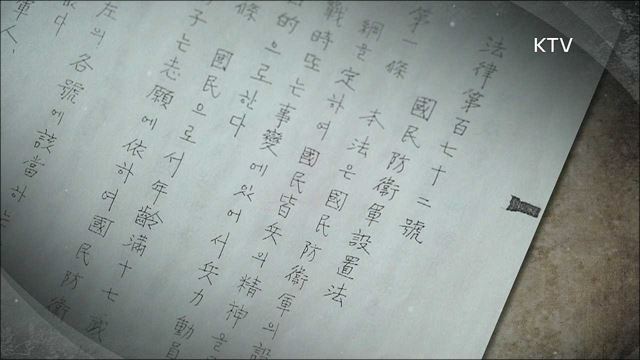 KTV
法律第百七十二號
國民防衛軍設置法
第一條 本法은國民防衛軍의設
綱을定하여國民皆兵의精神을
戰時또는事變에있어서兵力動員
的으로한다
條 國民으로서年齡滿十七歲
子는志願에依하여國民防衛
左의各號에該當하는
軍人、